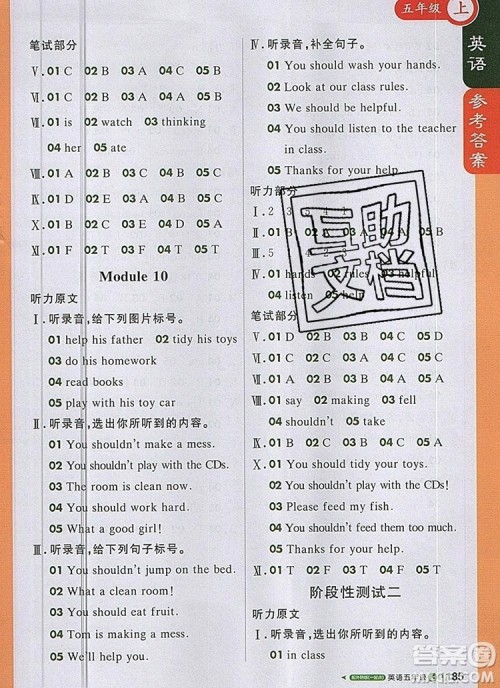 五年级 上
英语
参考答案
笔试部分
Ⅴ. 01 C 02 B 03 A 04 C 05 B
Ⅶ. 01 is 02 watch 03 thinking
04 her 05 ate
Ⅷ. 01 A 02 B 03 B 04 C 05 B
Ⅸ. 01 D 02 E 03 A 04 C 05 B
Ⅹ. 01 C 02 E 03 A 04 D 05 B
Ⅺ. 01 F 02 T 04 T 05 F
Module 10
听力原文
Ⅰ. 听录音,给下列图片标号。
01 help his father 02 tidy his toys
03 do his homework
04 read books
05 play with his toy car
Ⅱ. 听录音,选出你所听到的内容。
01 You shouldn't make a mess.
02 You shouldn't play with the CDs.
03 The room is clean now.
04 You should work hard.
05 What a good girl!
Ⅲ. 听录音,给下列句子标号。
01 You shouldn't jump on the bed.
02 What a clean room!
03 You should eat fruit.
04 Tom is making a mess.
05 You shouldn't play with the CDs.
Ⅳ. 听录音,补全句子。
01 You should wash your hands.
02 Look at our class rules.
03 We should be helpful.
04 You should listen to the teacher
in class.
05 Thanks for your help.
听力部分
Ⅰ. 2
Ⅲ. 5
Ⅳ. 01 02 rules 03 helpful
04 listen 05
笔试部分
Ⅴ. 01 D 02 C 03 B 04 A 05 D
Ⅶ. 01 A 02 B 03 A 04 C 05 A
Ⅷ. 01 say 02 making 03 fell
04 shouldn't 05 take
Ⅸ. 01 B 02 C 03 A 04 C 05 B
Ⅹ. 01 You should tidy your toys.
02 You shouldn't play with the CDs.
03 Please feed my fish.
04 You shouldn't feed them too much.
05 Thanks for your help.
Ⅺ. 01 F 02 F 03 T 04 F 05 T
阶段性测试二
听力原文
01 in class
互助文档
英语五年级 85